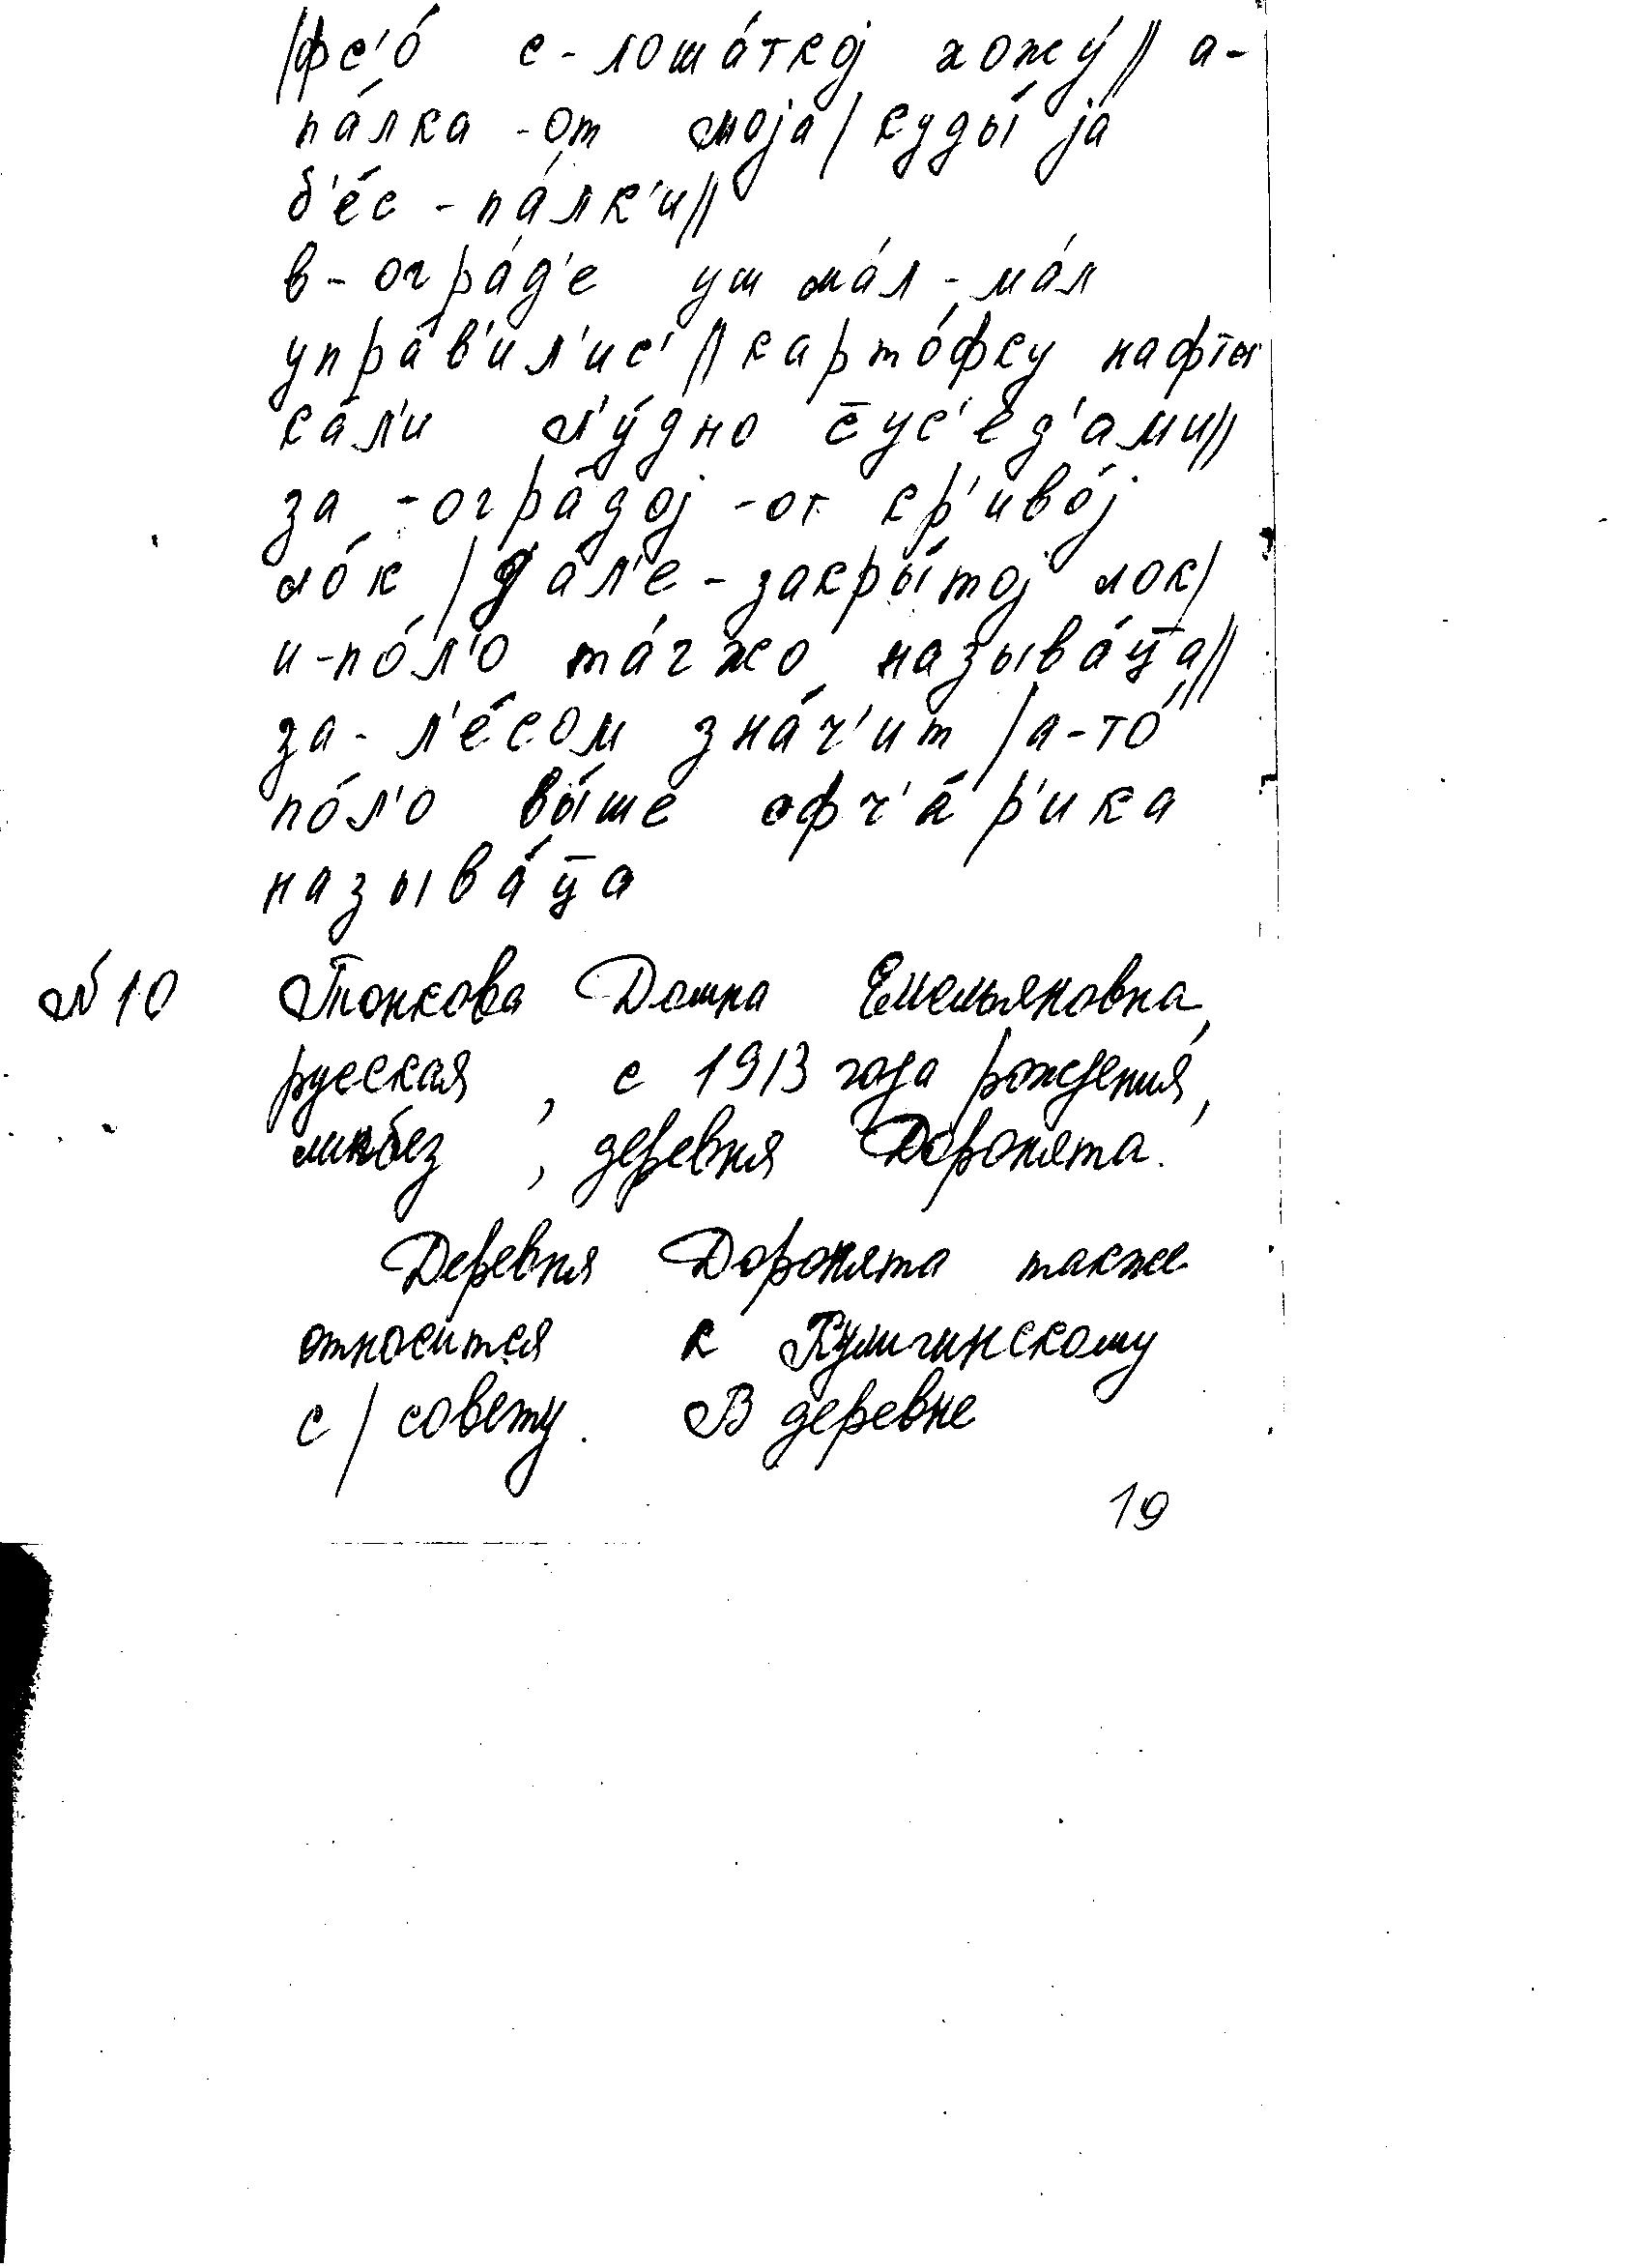 /фс'о́ с-лоша́ткој хожу́// а-
па́лка-от моја/ куды́ ја
б'е́с-па́лк'и//
в-огра́д'е уш ма́л-ма́л
упра́в'ил'ис'// карто́фку нафты
ка́л'и л'у́дно с̄ус'е́д'ами//
за-огра́дој-от кр'иво́ј
ло́к /да́л'е-закры́тој лок/
и-по́л'о та́гжо называ́ц̄а//
за-л'е́сом зна́ч'ит /а-то́
по́л'о вы́ше офч'а́р'ика
называ́ц̄а
№10 Тонкова Домна Емельяновна,
русская, с 1913 года рождения,
ликбез, деревня Доронята.
Деревня Доронята также
относится к Кулигинскому
с/совету. В деревне
19